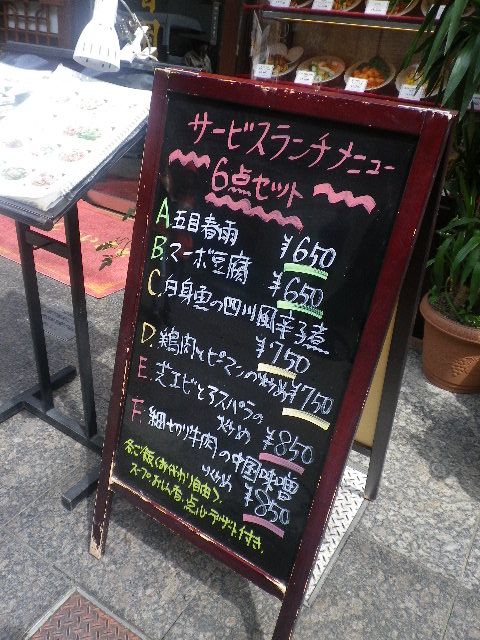 サービスランチメニュー
6点セット
A.五目春雨 ¥650
B.マーボ豆腐 ¥650
C.白身魚の四川風辛子煮
¥750
D.鶏肉とピーマンの炒め¥750
E.芝エビとアスパラの
炒め ¥850
F.細切り牛肉の中国味噌
炒め ¥850
各ご飯(おかわり自由)、
スープ、おしんこ、点心、デザート付き。